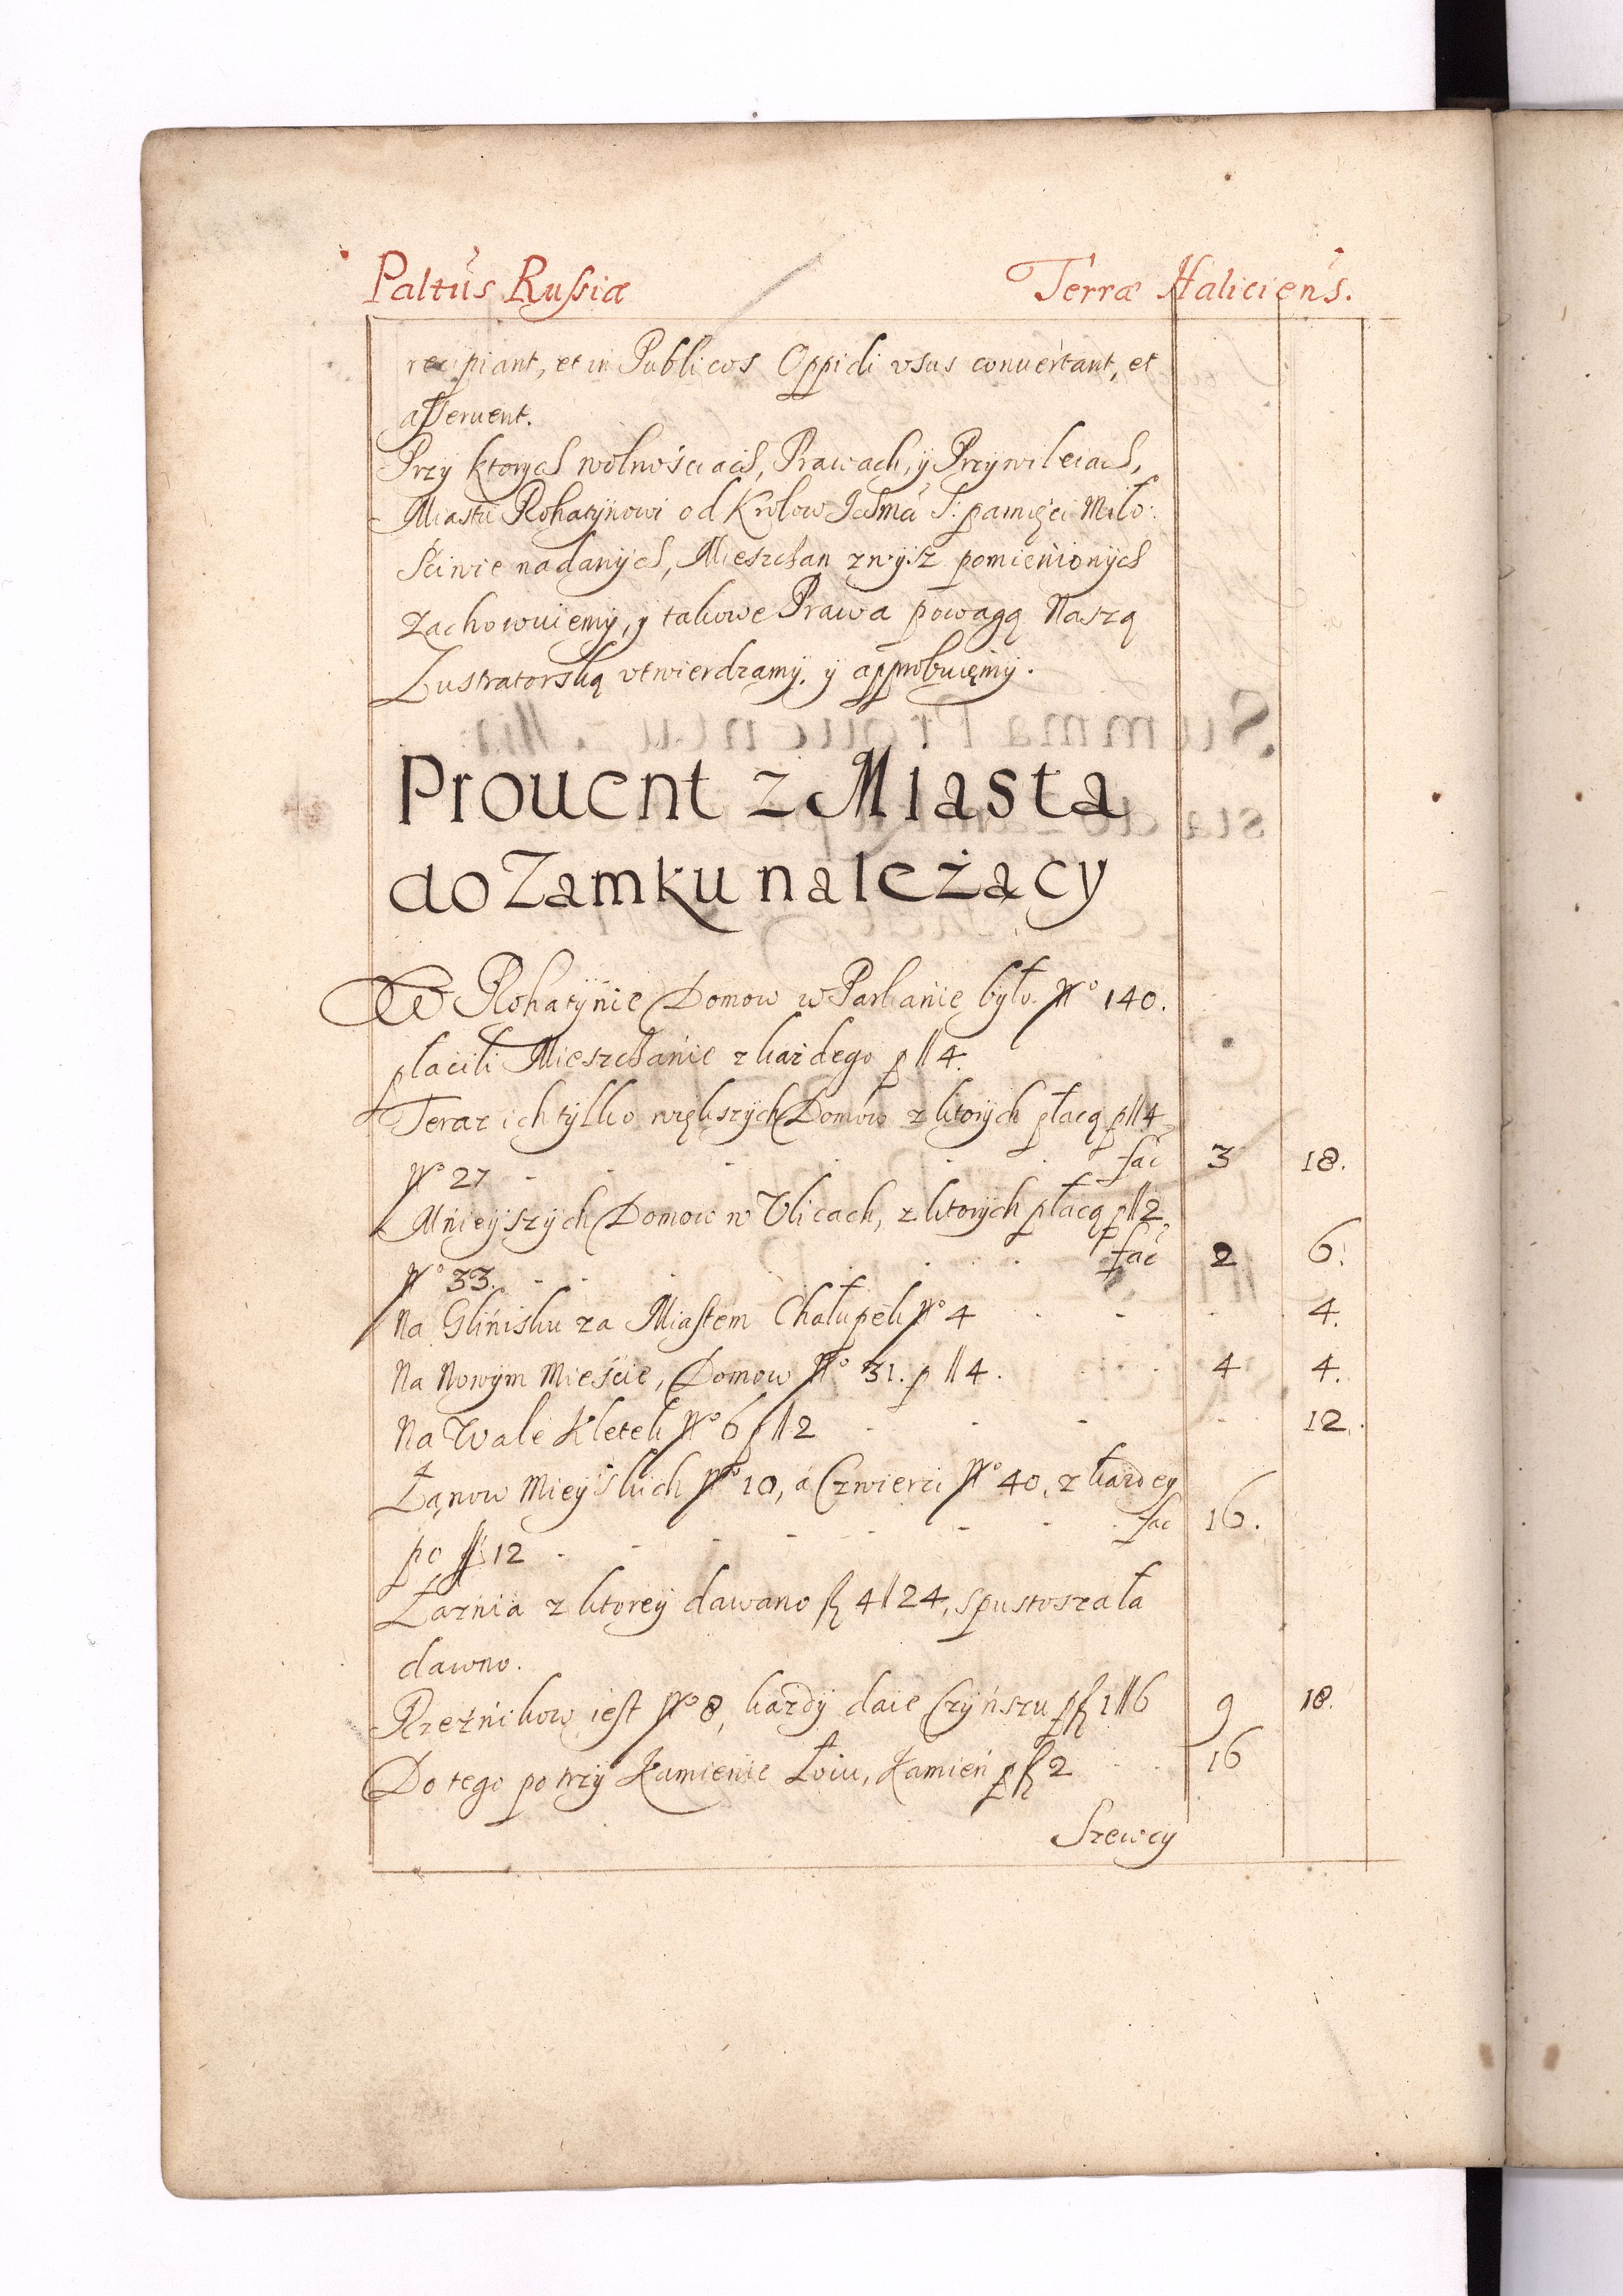 Paltus Russiæ Terræ Haliciens.
recipiant, et in Publicos Oppidi vsus conuertant, et
asseruent.
Przy ktorych wolnościach, Prawach, y Przywileiach,
Miastu Rohatynowi od Krolow Ichmci S: pamięci Miło:
ściwie nadanych, Mieszchan zwysz pomienionych
zachowuiemy, y takowe Prawa powagą Naszą
Lustratorską vtwierdzamy, y approbuięmy.
Prouent z Miasta
do Zamku należący
W Rohatynie Domow w Parkanie było. No 140.
płacili Mieszchanie z kazdego p // 4.
Teraz ich tylko większych Domow z ktorych płacą p // 4
No 27 - fac 3 18.
Mnieyszych Domow w Vlicach, z ktorych płacą p // 2
No 33. - fac 2 6.
Na Glinisku za Miastem Chałupek No 4 - 4.
Na Nowym Mieście, Domow No 31. p // 4. 4 4.
Na Wale Kletek No 6 p // 2 - 12.
Łanow Mieyskich No 10, a Czwierci No 40, z kazdey
po // 12 - fac 16.
Łaznia z ktorey dawano f 4 // 24, spustoszała
dawno.
Rzeźnikow iest No 8, kazdy daie Czynszu p f 1 // 6 9 18.
Do tego po trzy Kamienie Łoiu, Kamień p f 2 16
Szewcy